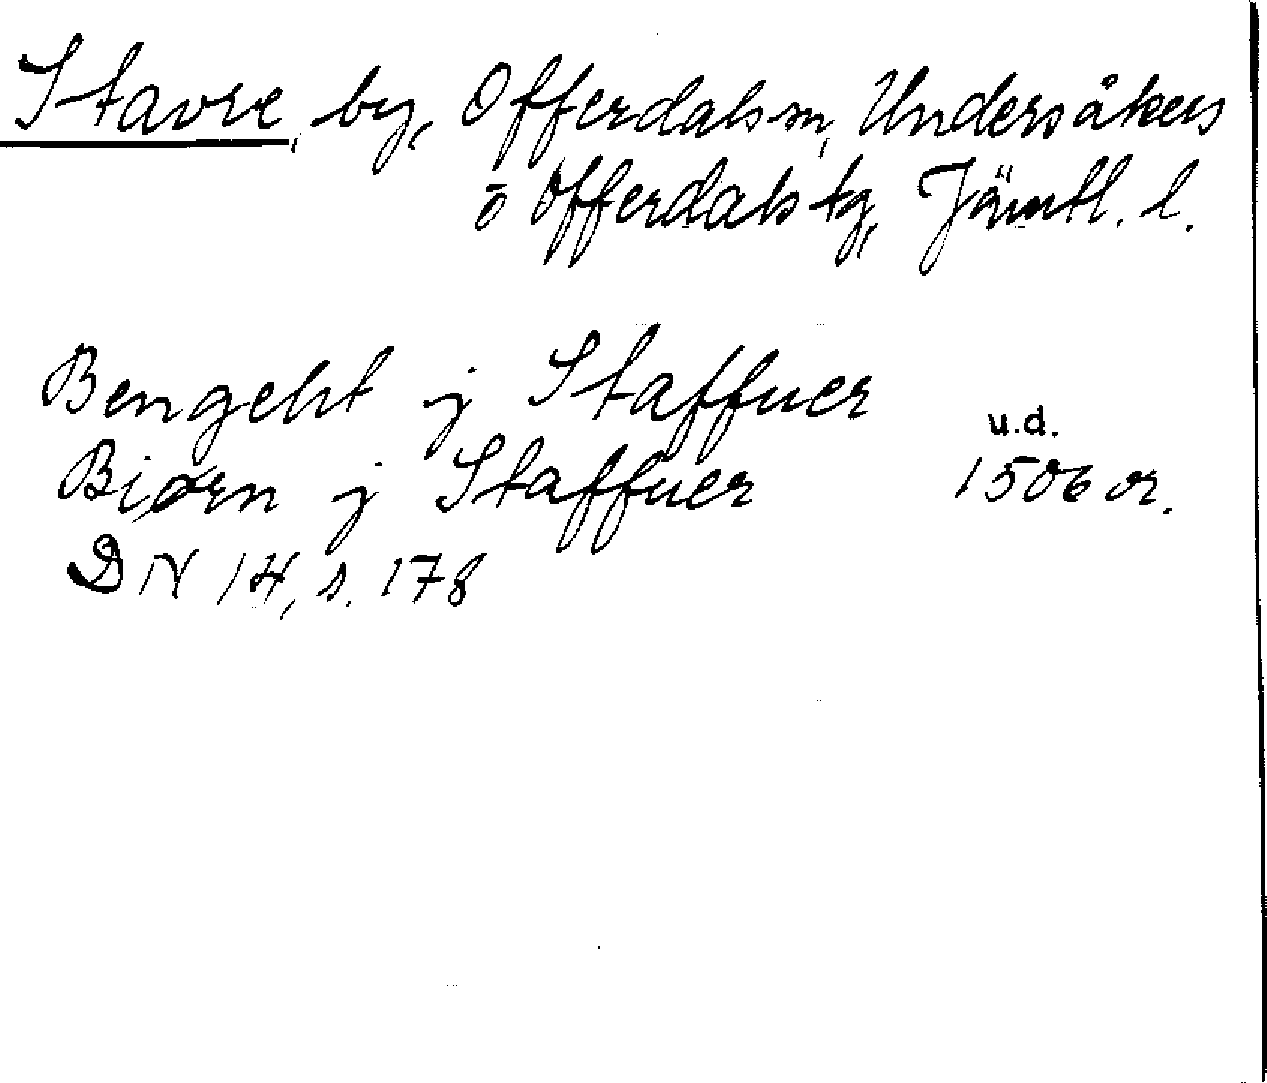 Stavre, by, Offerdals sn, Undersåkers
o Offerdals tg, Jämtl. l.
Bengeht j Staffuer
u.d.
Biørn j Staffuer 1506 or.
DN 14, s. 178